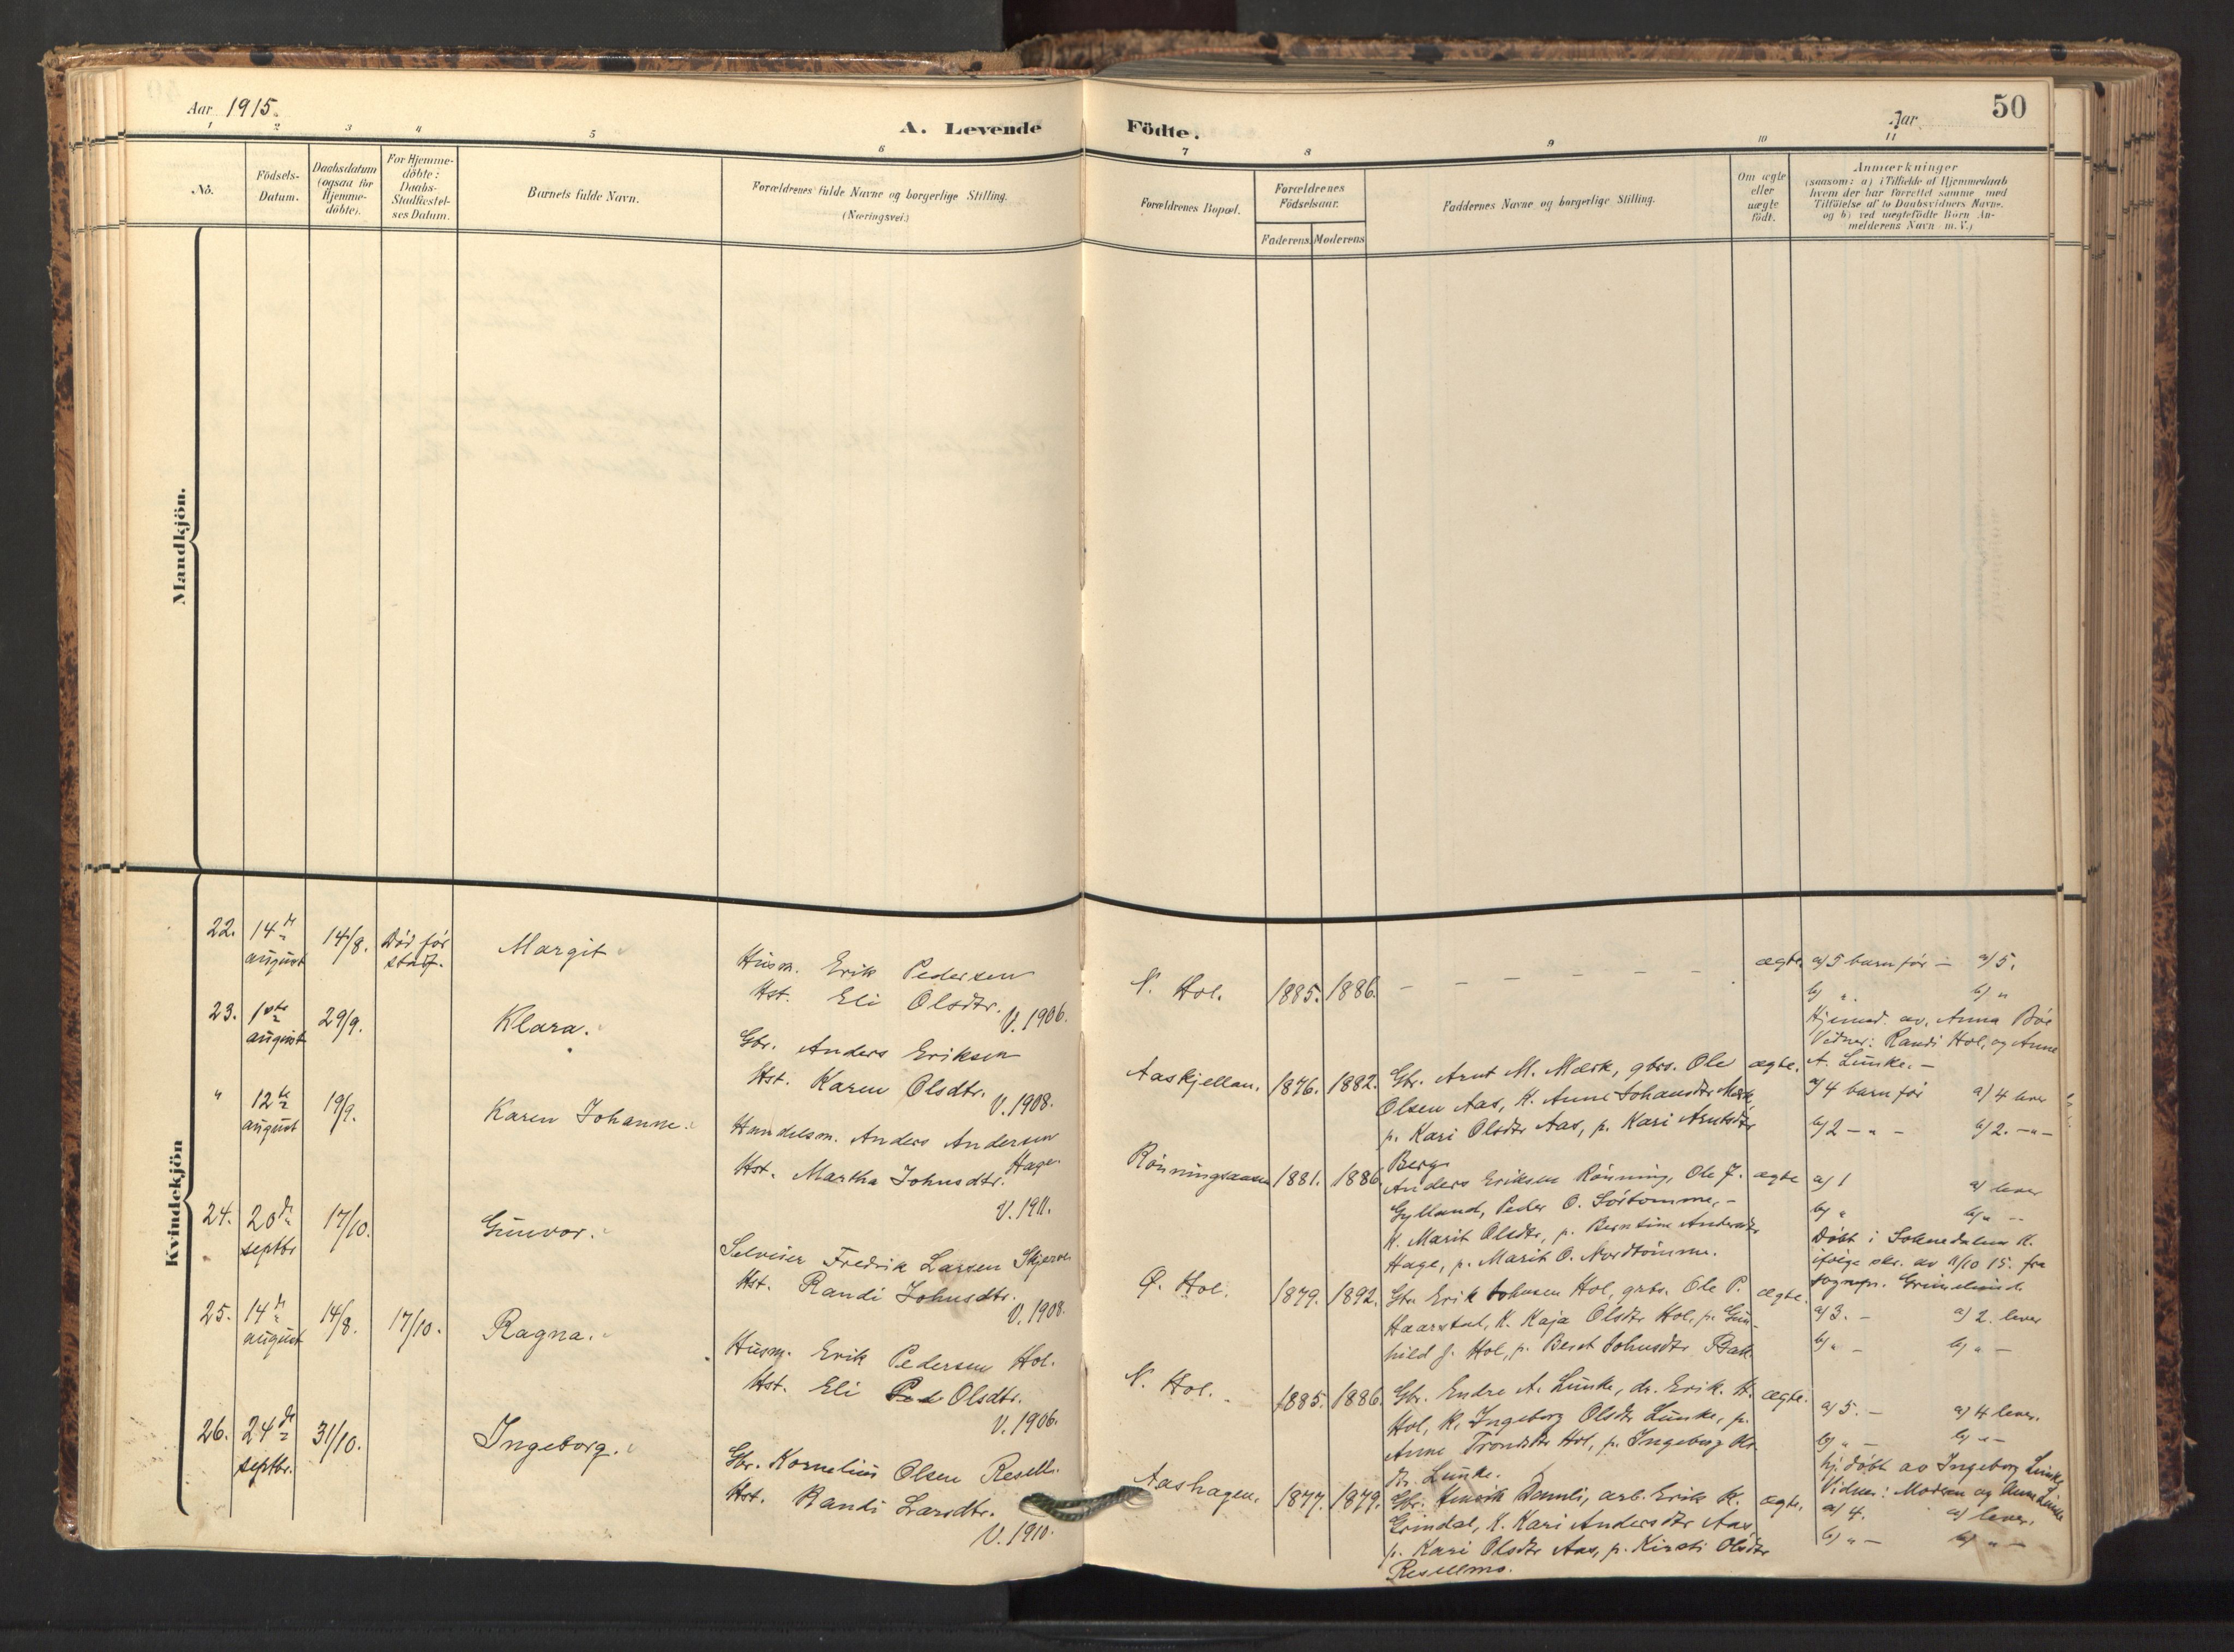 Aar 1915.
A. Levende Födte.
Aar
50
1 2 3 4 5 6 7 8 9 10 11
No.
Födsels-
Datum.
Daabsdatum
(ogsaa for
Hjemme-
döbte).
For Hjemme-
döbte:
Daabs-
Stadfæstel-
ses Datum.
Barnets fulde Navn.
Forældrenes fulde Navne og borgerlige Stilling.
(Næringsvei.)
Forældrenes Bopæl.
Forældrenes
Födselsaar.
Faderens
Moderens
Faddernes Navne og borgerlige Stilling.
Om ægte
eller
uægte
födt.
Anmærkninger
(saasom: a) i Tilfælde af Hjemmedaab
hvem der har forrettet samme med
Tilföielse af to Daabsvidners Navne.
og b) ved uægtefödte Börn An-
melderens Navn m. V.)
Mandkjön.
Kvindekjön
22. 14de august 14/8. Död før stadf.
Margit
Husm. Erik Pedersen
Hst. Eli Olsdtr.
V. 1906.
N. Hol. 1885. 1886. – – – – – – ægte.
a) 5 barn før – a) 5.
b) ". b) "
Hjemmed. av Anna Böe
Vidner: Randi Hol, og Anne
A. Lunke. –
23. 1ste august 29/9.
Klara.
Gbr. Anders Eriksen
Hst. Karen Olsdtr.
V. 1908.
Aaskjellan. 1876. 1882.
Gbr. Arnt M. Mærk, gbrs. Ole
Olsen Aas, K. Anne Johansdtr Mærk,
p. Kari Olsdtr Aas, p. Kari Arntsdtr
Berg.
ægte.
a) 4 barn før a) 4 lever
b) 2 – " – b) 2. – " –
" 12te august 19/9.
Karen Johanne.
Handelsm. Anders Andersen
Hage.
Hst. Martha Johnsdtr.
V. 1911.
Rönningsaasen 1881. 1886
Anders Eriksen Rönning, Ole J.
Gylland, Peder O. Sörtömme, –
K. Marit Olsdtr, p. Berntine Andersdtr
Hage, p. Marit O. Nordtömme.
ægte
a) 1 a) lever
b) " b) " –
Döbt i Soknedalen K.
ifölge skr. av 11/10 15. fra
sognepr. Grimelund.
24. 20de septbr 17/10.
Gunvor.
Selveier Fredrik Larsen Skjerve
Hst. Randi Johnsdtr.
V. 1908.
Ö. Hol. 1879. 1892.
Gbr. Erik Johnsen Hol, gbrs. Ole P.
Haarstad, K. Kaja Olsdtr Hol, p. Gun-
hild J. Hol, p. Beret Johnsdtr Bak.
ægte.
a) 3. – a) 2. lever
b) " – b) " –
25. 14de august 14/8. 17/10.
Ragna.
Husm. Erik Pedersen Hol.
Hst. Eli Ped Olsdtr.
V. 1906.
N. Hol. 1885. 1886
Gbr. Endre A. Lunke, dr. Erik H.
Hol, K. Ingeborg Olsdtr Lunke, p.
Anne Trondsdtr Hol, p. Ingeborg Ols-
dtr. Lunke.
ægte.
a) 5. – a) 4 lever.
b) " – b) " –
hj. döbt av Ingeborg Lunke
Vidner: Moderen og Anne Lunke
26. 24de septbr. 31/10.
Ingeborg.
Gbr. Kornelius Olsen Resell.
Hst. Randi Larsdtr.
V. 1910.
Aashagen. 1877. 1879.
Gbr. Henrik Damli, arb. Erik K.
Grindal, K. Kari Andersdtr Aas,
p. Kari Olsdtr Aas, p. Kirsti Olsdtr
Resellmo.
ægte.
a) 4. a) lever.
b) " – b) " –